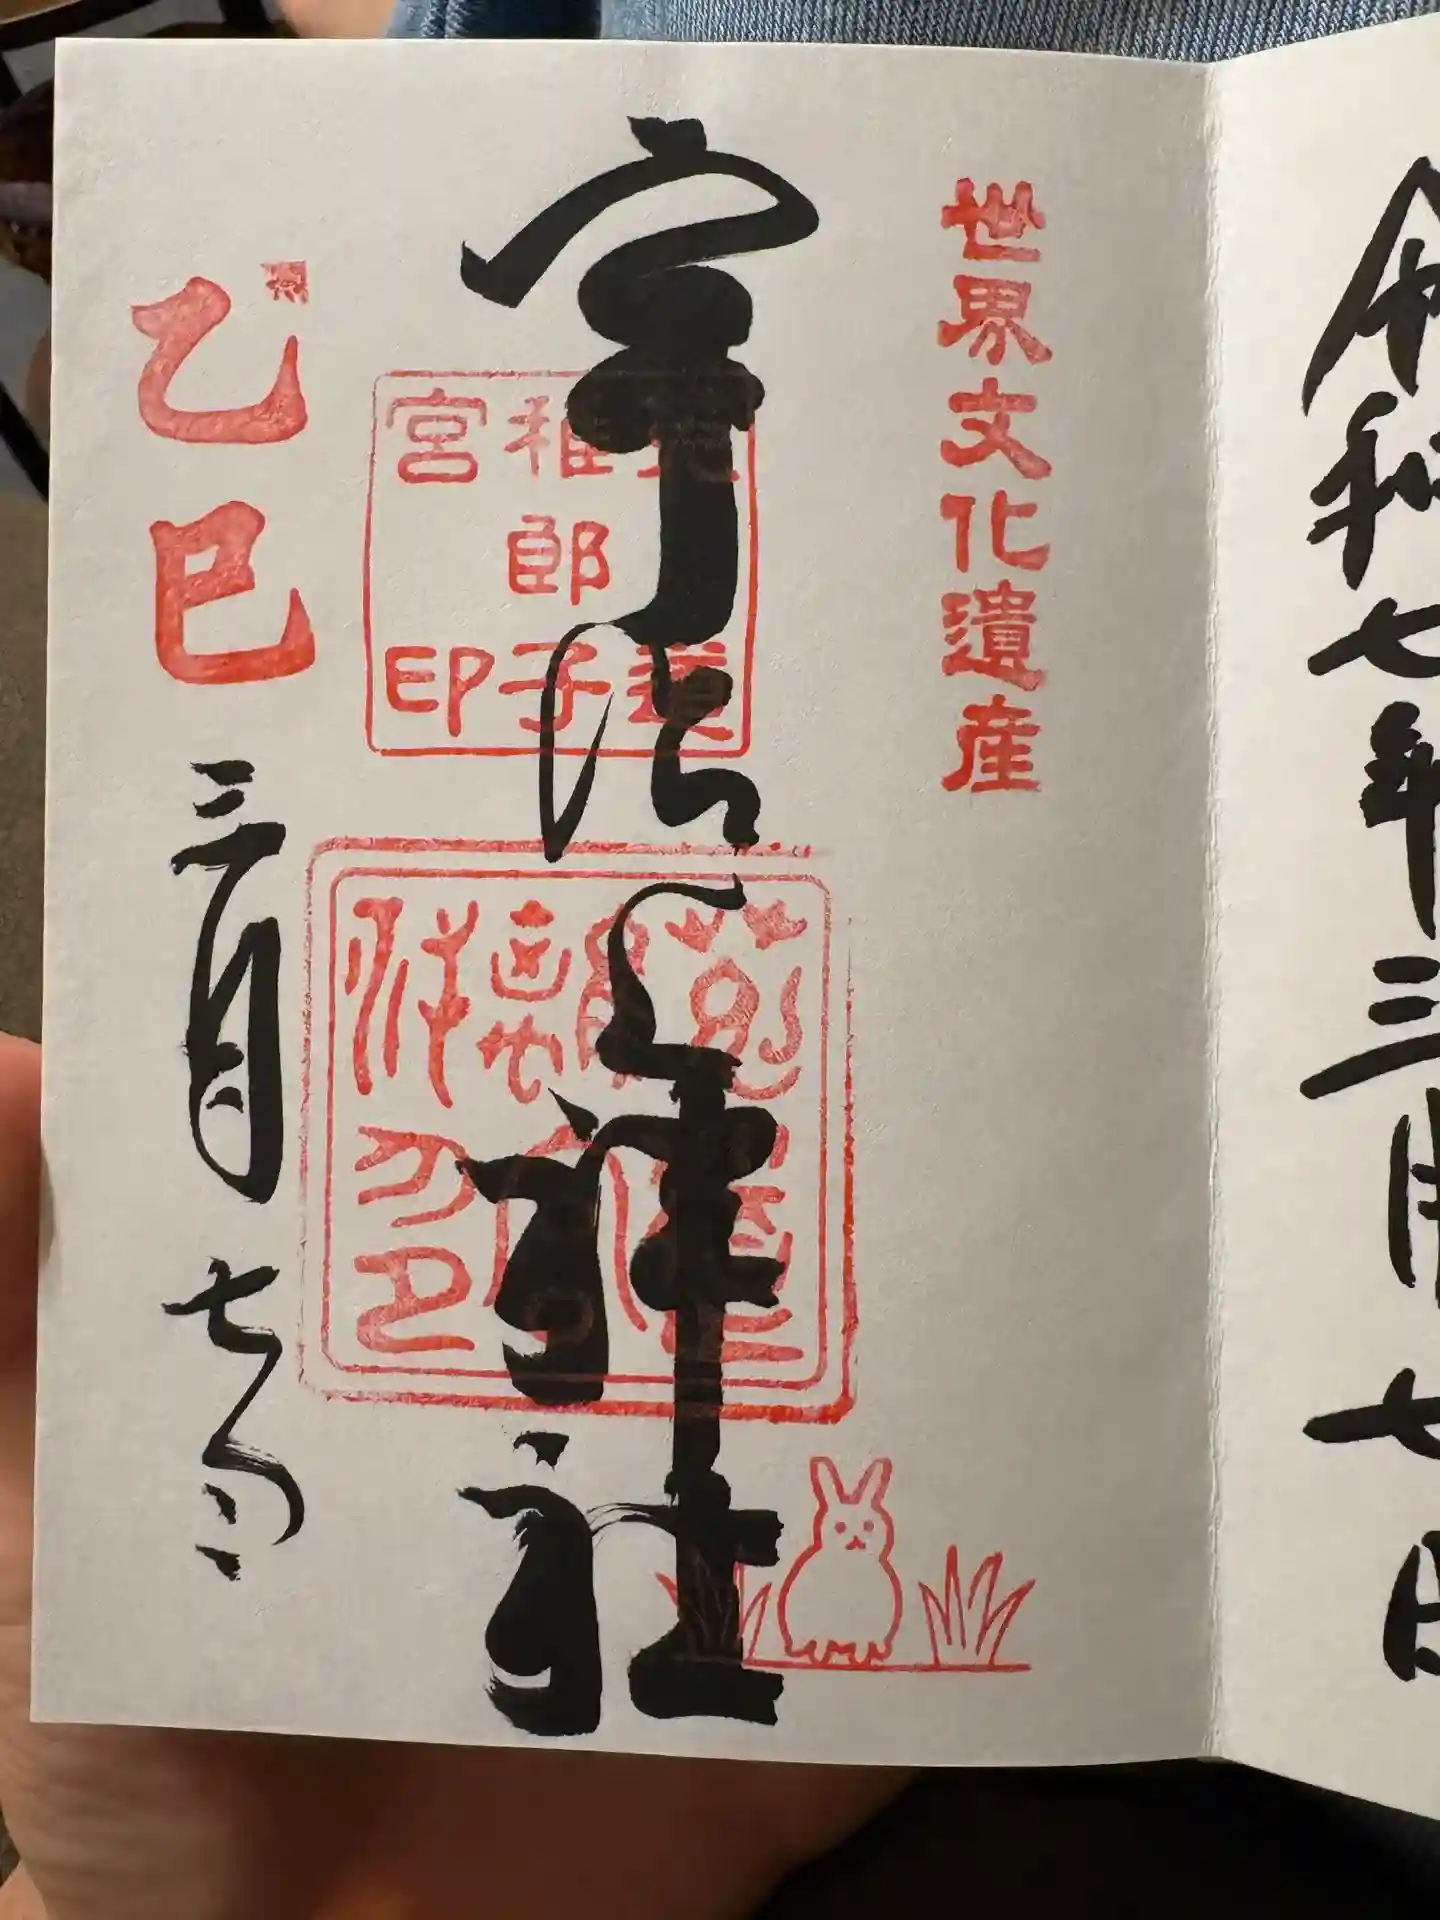 令和七年三月七日
世界文化遺産
宇治上神社
菟道
稚郎子
宮印
乙巳三月七日